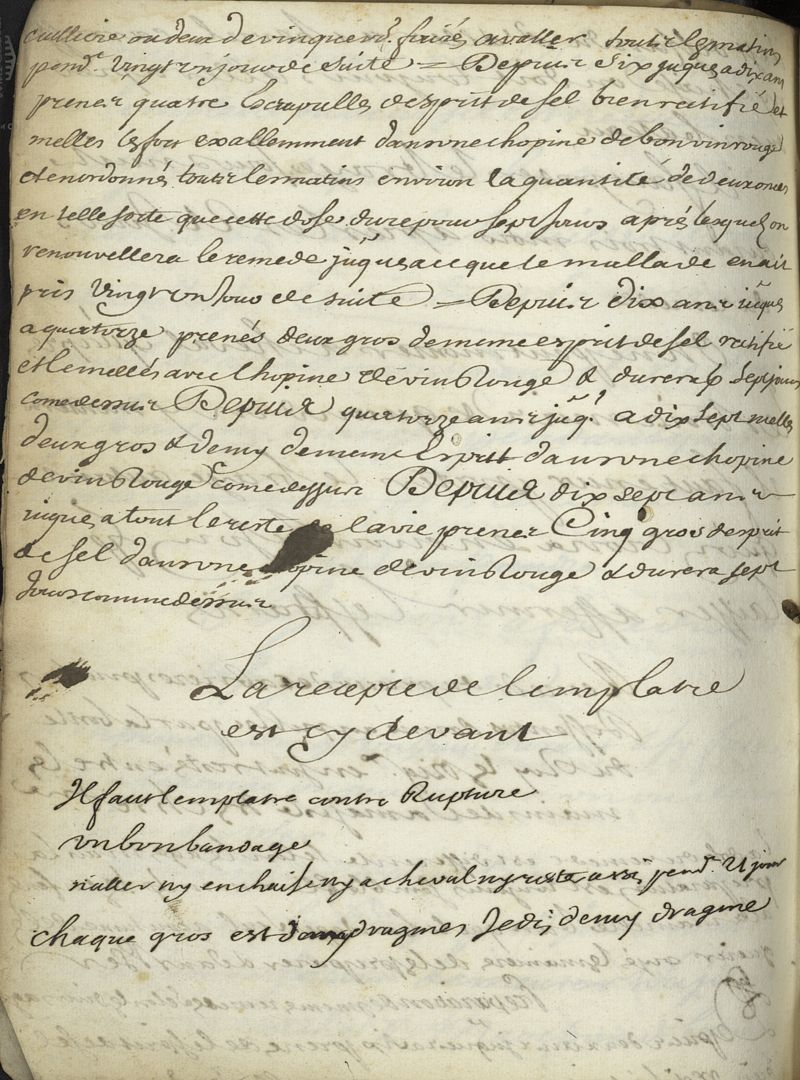 cuilliere ou deux de vin que vs. ferés avaller tous les matins
pendt. vingt un jour de suite = Depuis six jusques a dix ans
prenez quatre scrupulles d'esprit de sel bien ratifié et
melles les fort exallemment dans une chopine de bon vin rouge
et en ordonnés tous les matins environ la quantité de deux onces
en telle sorte que cette dose dure pour sept jours aprés lesquels on
renouvellera le remede juques a ce que le mallade en ait
pris vingt un jour de suite = Depuis dix ans juques
a quatorze prenés deux gros de meme esprit de sel ratifié
et le mellés avec chopine de vin Rouge & durera sept jours
come dessus Depuis quatorze ans juq. a dix sept melles
deux gros & demy de meme Esprit dans une chopine
de vin Rouge come dessus Depuis dix sept ans
juques a tout le reste de la vie prenez Cinq gros desprit
de sel dans une chopine de vin Rouge & durera sept
jours comme dessus
La recepte de lemplatre
est cy devant
Il faut lemplatre contre Rupture
un bon bandage
n'aller ny en chaise ny a cheval ny pendt. 21 jour
chaque gros est dragmes Je dis demy dragme